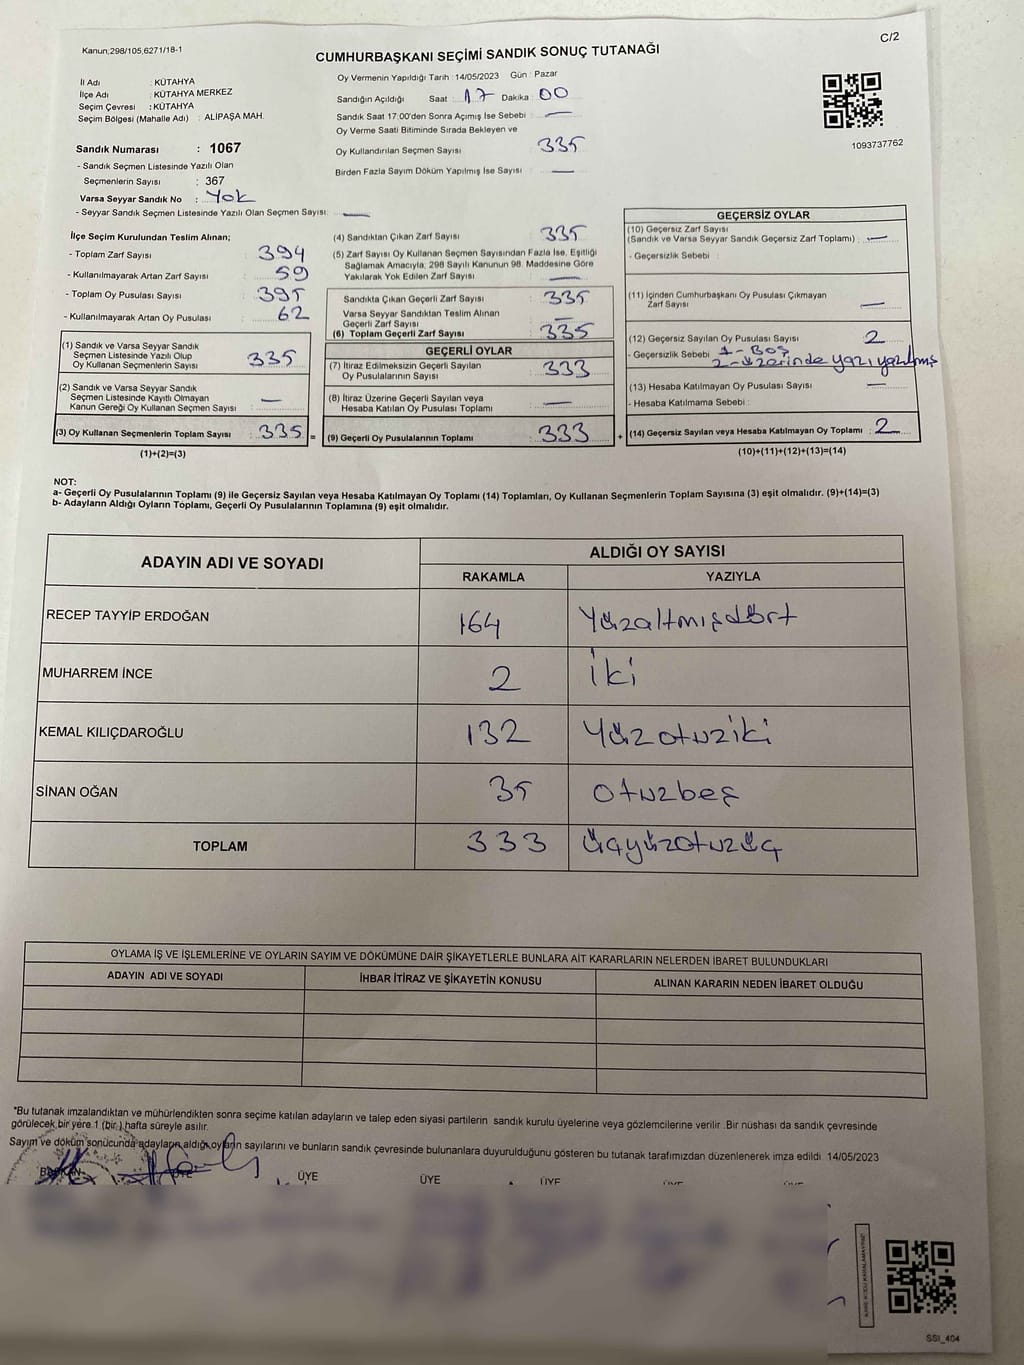 Kanun,298/105,6271/18-1
C/2
CUMHURBAŞKANI SEÇİMİ SANDIK SONUÇ TUTANAĞI
İl Adı : KÜTAHYA
İlçe Adı : KÜTAHYA MERKEZ
Seçim Çevresi : KÜTAHYA
Seçim Bölgesi (Mahalle Adı) : ALİPAŞA MAH.
Sandık Numarası : 1067
- Sandık Seçmen Listesinde Yazılı Olan
Seçmenlerin Sayısı : 367
Varsa Seyyar Sandık No : Yok
- Seyyar Sandık Seçmen Listesinde Yazılı Olan Seçmen Sayısı: —
Oy Vermenin Yapıldığı Tarih :14/05/2023 Gün : Pazar
Sandığın Açıldığı Saat : 17 Dakika : 00
Sandık Saat 17.00'den Sonra Açımış İse Sebebi : —
Oy Verme Saati Bitiminde Sırada Bekleyen ve
Oy Kullandırılan Seçmen Sayısı : 335
Birden Fazla Sayım Döküm Yapılmış İse Sayısı : —
1093737762
İlçe Seçim Kurulundan Teslim Alınan;
- Toplam Zarf Sayısı : 394
- Kullanılmayarak Artan Zarf Sayısı : 59
- Toplam Oy Pusulası Sayısı : 395
- Kullanılmayarak Artan Oy Pusulası : 62
(1) Sandık ve Varsa Seyyar Sandık
Seçmen Listesinde Yazılı Olup
Oy Kullanan Seçmenlerin Sayısı : 335
(2) Sandık ve Varsa Seyyar Sandık
Seçmen Listesinde Kayıtlı Olmayan
Kanun Gereği Oy Kullanan Seçmen Sayısı : —
(3) Oy Kullanan Seçmenlerin Toplam Sayısı : 335 =
(1)+(2)=(3)
(4) Sandıktan Çıkan Zarf Sayısı : 335
(5) Zarf Sayısı Oy Kullanan Seçmen Sayısından Fazla İse, Eşitliği
Sağlamak Amacıyla, 298 Sayılı Kanunun 98. Maddesine Göre
Yakılarak Yok Edilen Zarf Sayısı : —
Sandıkta Çıkan Geçerli Zarf Sayısı : 335
Varsa Seyyar Sandıktan Teslim Alınan
Geçerli Zarf Sayısı : —
(6) Toplam Geçerli Zarf Sayısı : 335
GEÇERLİ OYLAR
(7) İtiraz Edilmeksizin Geçerli Sayılan
Oy Pusulalarının Sayısı : 333
(8) İtiraz Üzerine Geçerli Sayılan veya
Hesaba Katılan Oy Pusulası Toplamı : —
(9) Geçerli Oy Pusulalarının Toplamı : 333 +
GEÇERSİZ OYLAR
(10) Geçersiz Zarf Sayısı
(Sandık ve Varsa Seyyar Sandık Geçersiz Zarf Toplamı) : —
- Geçersizlik Sebebi :
(11) İçinden Cumhurbaşkanı Oy Pusulası Çıkmayan
Zarf Sayısı : —
(12) Geçersiz Sayılan Oy Pusulası Sayısı : 2
- Geçersizlik Sebebi : 1- Boş
2- üzerinde yazı yazılmış
(13) Hesaba Katılmayan Oy Pusulası Sayısı : —
- Hesaba Katılmama Sebebi :
(14) Geçersiz Sayılan veya Hesaba Katılmayan Oy Toplamı : 2
(10)+(11)+(12)+(13)=(14)
NOT:
a- Geçerli Oy Pusulalarının Toplamı (9) ile Geçersiz Sayılan veya Hesaba Katılmayan Oy Toplamı (14) Toplamları, Oy Kullanan Seçmenlerin Toplam Sayısına (3) eşit olmalıdır. (9)+(14)=(3)
b- Adayların Aldığı Oyların Toplamı, Geçerli Oy Pusulalarının Toplamına (9) eşit olmalıdır.
ADAYIN ADI VE SOYADI
ALDIĞI OY SAYISI
RAKAMLA YAZIYLA
RECEP TAYYİP ERDOĞAN 164 Yüzaltmışdört
MUHARREM İNCE 2 iki
KEMAL KILIÇDAROĞLU 132 Yüzotuziki
SİNAN OĞAN 35 otuzbeş
TOPLAM 333 üçyüzotuzüç
OYLAMA İŞ VE İŞLEMLERİNE VE OYLARIN SAYIM VE DÖKÜMÜNE DAİR ŞİKAYETLERLE BUNLARA AİT KARARLARIN NELERDEN İBARET BULUNDUKLARI
ADAYIN ADI VE SOYADI İHBAR İTİRAZ VE ŞİKAYETİN KONUSU ALINAN KARARIN NEDEN İBARET OLDUĞU
*Bu tutanak imzalandıktan ve mühürlendikten sonra seçime katılan adayların ve talep eden siyasi partilerin sandık kurulu üyelerine veya gözlemcilerine verilir .Bir nüshası da sandık çevresinde
görülecek bir yere 1 (bir ) hafta süreyle asılır.
Sayım ve döküm sonucunda adayların aldığı oyların sayılarını ve bunların sandık çevresinde bulunanlara duyurulduğunu gösteren bu tutanak tarafımızdan düzenlenerek imza edildi 14/05/2023
BAŞKAN ÜYE ÜYE ÜYE ÜYE ÜYE ÜYE
SSI_404